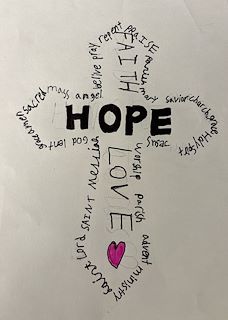 FAITH
HOPE
LOVE
sacred mass angel belive pray repent PRAISE
mary savior church
Holy
Jesus worship parish advent ministry
Lord SAINT Messiah God lent